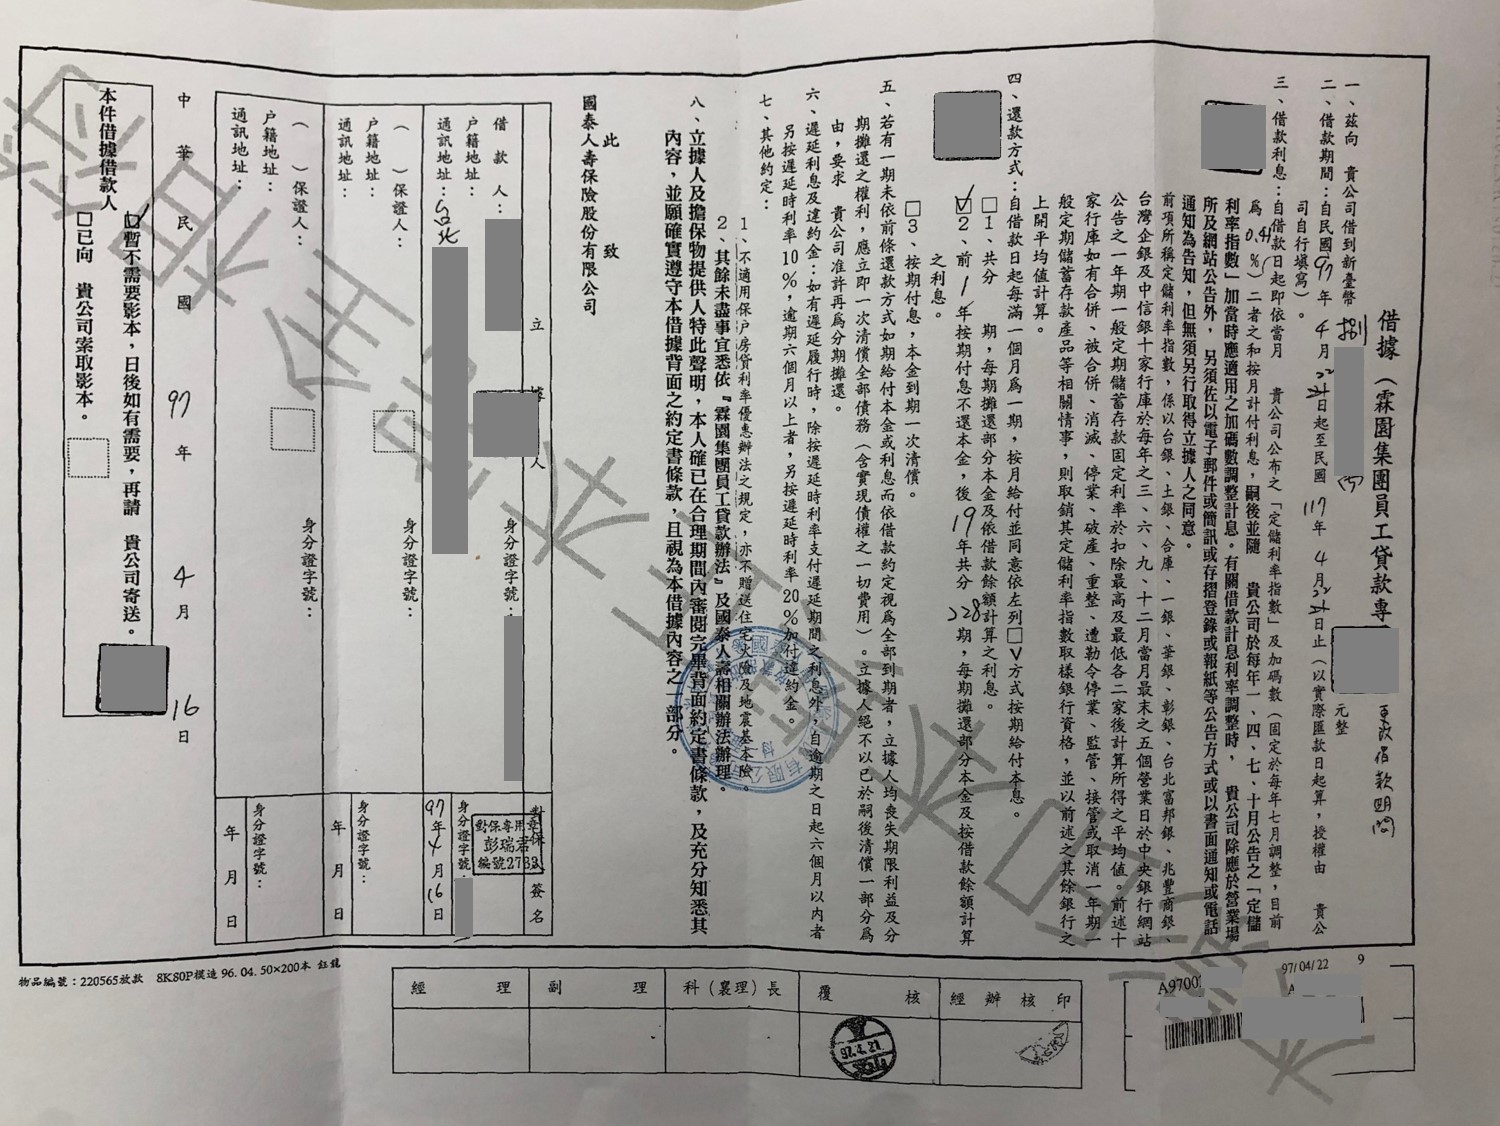 借據（霖園集團員工貸款專
一、茲向　貴公司借到新臺幣 捌 元整
二、借款期間：自民國97年4月22日起至民國117年4月22日止（以實際匯款日起算，授權由　貴公
司自行填寫）。
三、借款利息：自借款日起即依當月　貴公司公布之「定儲利率指數」及加碼數（固定於每年七月調整，目前
為0.41%）二者之和按月計付利息，嗣後並隨　貴公司於每年一、四、七、十月公告之「定儲
利率指數」加當時應適用之加碼數調整計息。有關借款計息利率調整時，　貴公司除應於營業場
所及網站公告外，另須佐以電子郵件或簡訊或存摺登錄或報紙等公告方式或以書面通知或電話
通知為告知，但無須另行取得立據人之同意。
前項所稱定儲利率指數，係以台銀、土銀、合庫、一銀、華銀、彰銀、台北富邦銀、兆豐商銀、
台灣企銀及中信銀十家行庫於每年之三、六、九、十二月當月最末之五個營業日於中央銀行網站
公告之一年期一般定期儲蓄存款固定利率於扣除最高及最低各二家後計算所得之平均值。前述十
家行庫如有合併、被合併、消滅、停業、破產、重整、遭勒令停業、監管、接管或取消一年期一
般定期儲蓄存款產品等相關情事，則取銷其定儲利率指數取樣銀行資格，並以前述之其餘銀行之
上開平均值計算。
四、還款方式：自借款日起每滿一個月為一期，按月給付並同意依左列□V方式按期給付本息。
□1、共分　期，每期攤還部分本金及依借款餘額計算之利息。
☑2、前1年按期付息不還本金，後19年共分228期，每期攤還部分本金及按借款餘額計算
之利息。
□3、按期付息，本金到期一次清償。
五、若有一期未依前條還款方式如期給付本金或利息而依借款約定視為全部到期者，立據人均喪失期限利益及分
期攤還之權利，應立即一次清償全部債務（含實現債權之一切費用）。立據人絕不以已於嗣後清償一部分為
由，要求　貴公司准許再為分期攤還。
六、遲延利息及違約金：如有遲延履行時，除按遲延時利率支付遲延期間之利息外，自逾期之日起六個月以內者
另按遲延時利率10%，逾期六個月以上者，另按遲延時利率20%加付違約金。
七、其他約定：
1、不適用保戶房貸利率優惠辦法之規定，亦不贈送住宅火險及地震基本險。
2、其餘未盡事宜悉依『霖園集團員工貸款辦法』及國泰人壽相關辦法辦理。
八、立據人及擔保物提供人特此聲明，本人確已在合理期間內審閱完畢背面約定書條款，及充分知悉其
內容，並願確實遵守本借據背面之約定書條款，且視為本借據內容之一部分。
此　致
國泰人壽保險股份有限公司
立　據　人
對保人簽名
借　款　人：
戶籍地址：台北
通訊地址：
身分證字號：
對保專用章
彭瑞君
編號2732
身分證字號：
97年4月16日
（　）保證人：
戶籍地址：
通訊地址：
身分證字號：
身分證字號：
年　月　日
（　）保證人：
戶籍地址：
通訊地址：
身分證字號：
身分證字號：
年　月　日
中華民國97年4月16日
本件借據借款人
☑暫不需要影本，日後如有需要，再請　貴公司寄送。
□已向　貴公司索取影本。
物品編號：220565放款　8K80P模造 96.04.50×200本 鈺龍
經　理　副　理　科（襄理）長　覆　核　經辦核印
97.4.21
9
97/04/22
A9700
A